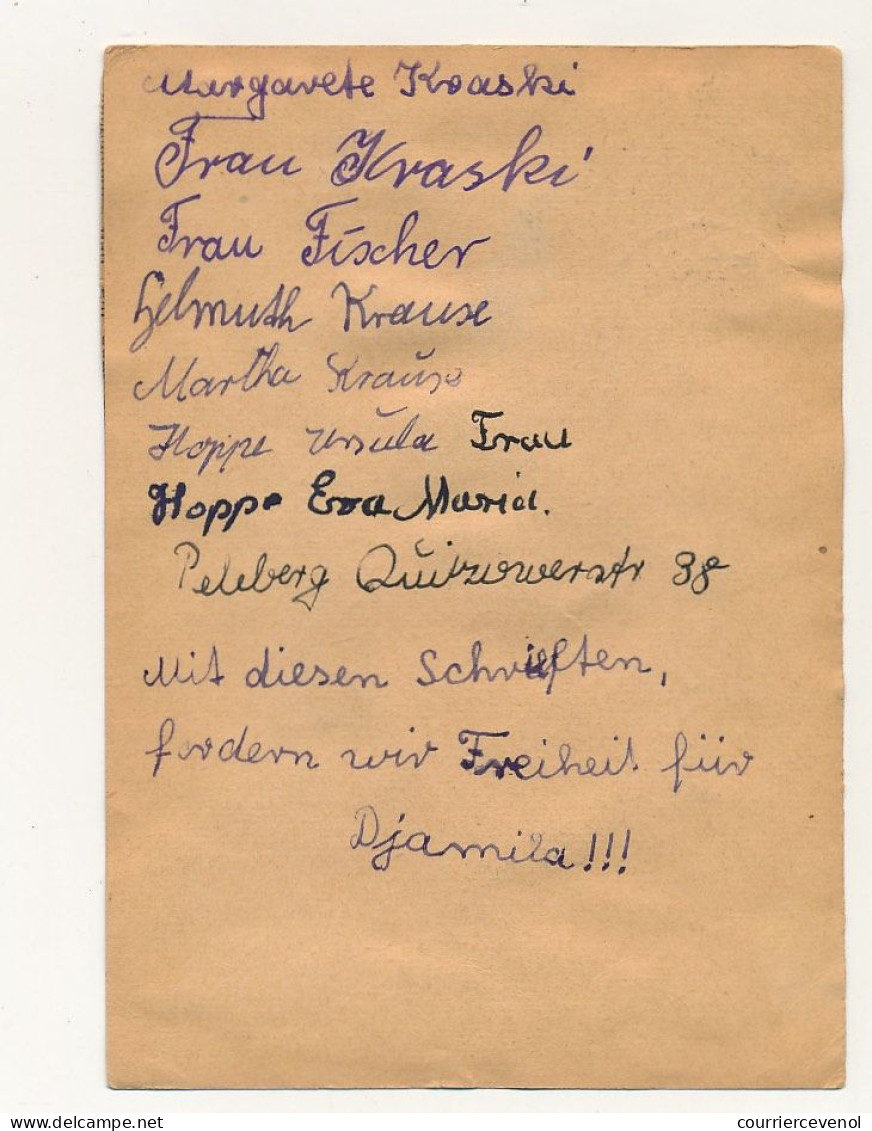 Margarete Kraski
Frau Kraski
Frau Fischer
Helmuth Krause
Martha Krause
Hoppe Ursula Frau
Hoppe Eva Maria.
Peleberg Quitzowerstr 38
Mit diesen Schriften,
fordern wir Freiheit für
Djamila!!!
courriercevenol